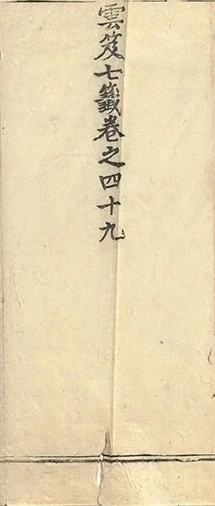 雲笈七籤卷之四十九